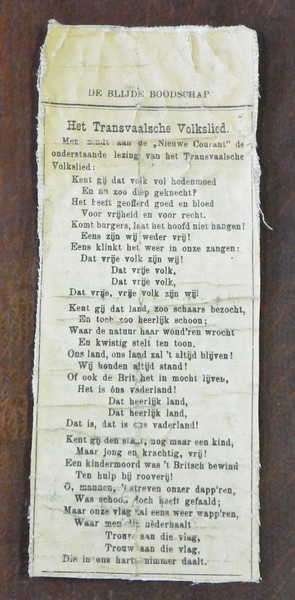 DE BLIJDE BOODSCHAP
Het Transvaalsche Volkslied.
Men zendt aan de „Nieuwe Courant" de
onderstaande lezing van het Transvaalsche
Volkslied:
Kent gij dat volk vol heldenmoed
En nu zoo diep geknecht?
Het heeft geofferd goed en bloed
Voor vrijheid en voor recht.
Komt burgers, laat het hoofd niet hangen!
Eens zijn wij weder vrij!
Eens klinkt het weer in onze zangen:
Dat vrije volk zijn wij!
Dat vrije volk,
Dat vrije volk,
Dat vrije, vrije volk zijn wij!
Kent gij dat land, zoo schaars bezocht,
En toch zoo heerlijk schoon;
Waar de natuur haar wond'ren wrocht
En kwistig stelt ten toon.
Ons land, ons land zal 't altijd blijven!
Wij houden altijd stand!
Of ook de Brit het in mocht lijven,
Het is óns vaderland!
Dat heerlijk land,
Dat heerlijk land,
Dat is, dat is ons vaderland!
Kent gij den staat, nog maar een kind,
Maar jong en krachtig, vrij!
Een kindermoord was 't Britsch bewind
Ten hulp bij rooverij!
O, mannen, 't streven onzer dapp'ren,
Was schoon, doch heeft gefaald;
Maar onze vlag zal eens weer wapp'ren,
Waar men die nederhaalt
Trouw aan die vlag,
Trouw aan die vlag,
Die in ons hart nimmer daalt.